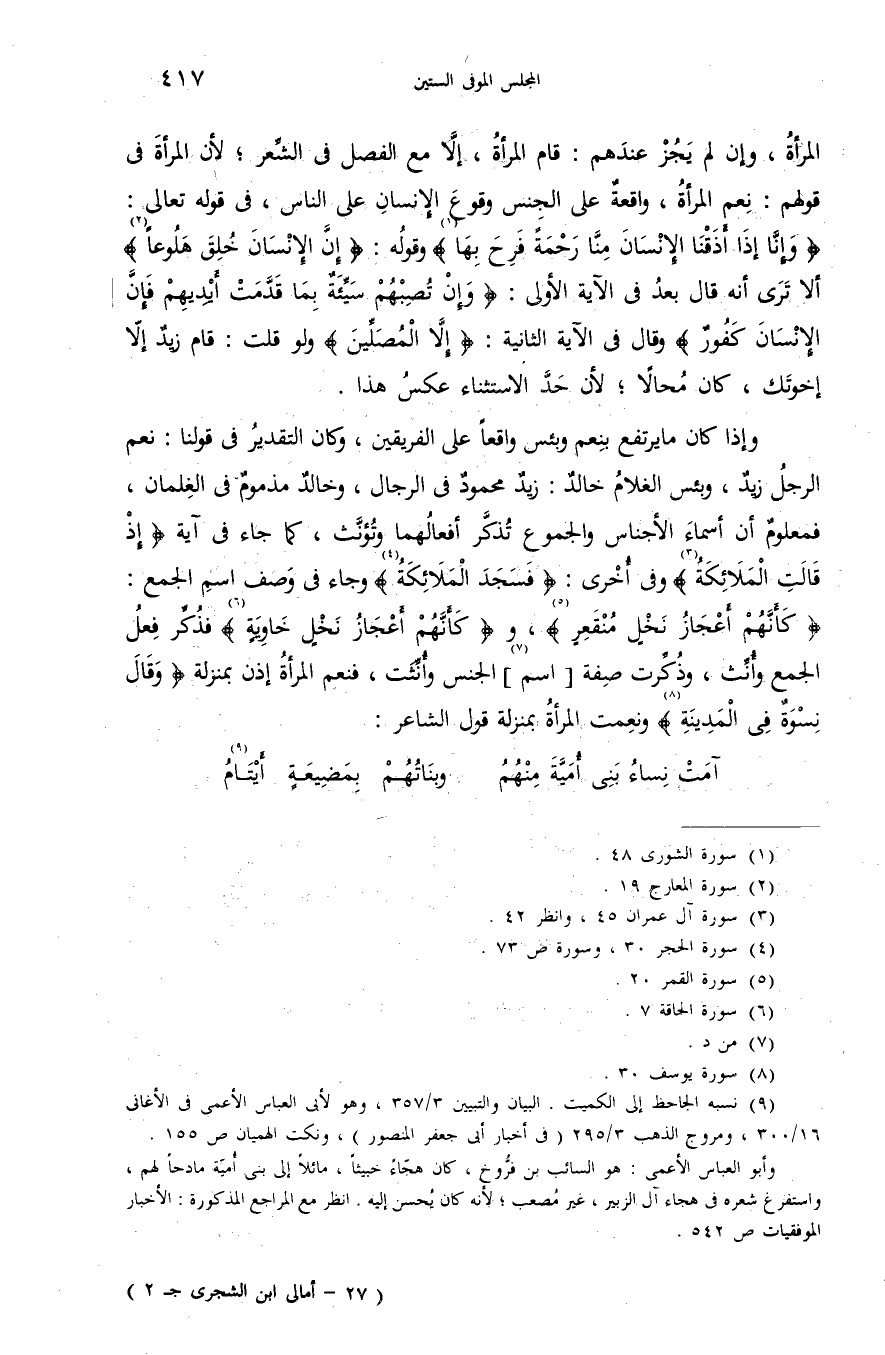 المجلس الموفى الستين ٤١٧
المرأةُ ، وإن لم يَجُزْ عندَهم : قام المرأةُ ، إلَّا مع الفصل فى الشِّعر ؛ لأن المرأةَ فى
قولهم : نِعم المرأةُ ، واقعةٌ على الجنس وقوعَ الإنسانِ على الناس ، فى قوله تعالى :
﴿ وَإِنَّا إِذَا أَذَقْنَا الإِنْسَانَ مِنَّا رَحْمَةً فَرِحَ بِهَا ﴾(١) وقولُه : ﴿ إِنَّ الإِنْسَانَ خُلِقَ هَلُوعاً ﴾(٢)
ألا تَرَى أنه قال بعدُ فى الآية الأولى : ﴿ وَإِنْ تُصِبْهُمْ سَيِّئَةٌ بِمَا قَدَّمَتْ أَيْدِيهِمْ فَإِنَّ
الإِنْسَانَ كَفُورٌ ﴾ وقال فى الآية الثانية : ﴿ إِلَّا الْمُصَلِّينَ ﴾ ولو قلت : قام زيدٌ إلّا
إخوتَك ، كان مُحالًا ؛ لأن حَدَّ الاستثناء عكسُ هذا .
وإذا كان مايرتفع بنِعم وبئس واقعاً على الفريقين ، وكان التقديرُ فى قولنا : نعم
الرجلُ زيدٌ ، وبئس الغلامُ خالدٌ : زيدٌ محمودٌ فى الرجال ، وخالدٌ مذمومٌ فى الغِلمان ،
فمعلومٌ أن أسماءَ الأجناس والجموع تُذكَّر أفعالُهما وتُؤنَّث ، كما جاء فى آية ﴿ إِذْ
قَالَتِ الْمَلَائِكَةُ ﴾(٣) وفى أُخْرى : ﴿ فَسَجَدَ الْمَلَائِكَةُ ﴾(٤) وجاء فى وَصف اسمِ الجمع :
﴿ كَأَنَّهُمْ أَعْجَازُ نَخْلٍ مُنْقَعِرٍ ﴾(٥) ، و ﴿ كَأَنَّهُمْ أَعْجَازُ نَخْلٍ خَاوِيَةٍ ﴾(٦) فذُكِّر فِعلُ
الجمع وأُنِّث ، وذُكِّرت صِفة [ اسم ](٧) الجنس وأُنِّثت ، فنعم المرأةُ إذن بمنزلة ﴿ وَقَالَ
نِسْوَةٌ فِى الْمَدِينَةِ ﴾(٨) ونعِمت المرأةُ بمنزلة قول الشاعر :
آمَتْ نِساءُ بَنِى أُمَيَّةَ مِنْهُمُ وبنَاتُهُـمْ بِمَضِيعَـةٍ أَيْتَـامُ(٩)
(١) سورة الشورى ٤٨ .
(٢) سورة المعارج ١٩ .
(٣) سورة آل عمران ٤٥ ، وانظر ٤٢ .
(٤) سورة الحجر ٣٠ ، وسورة ص ٧٣ .
(٥) سورة القمر ٢٠ .
(٦) سورة الحاقة ٧ .
(٧) من د .
(٨) سورة يوسف ٣٠ .
(٩) نسبه الجاحظ إلى الكميت . البيان والتبيين ٣٥٧/٣ ، وهو لأبى العباس الأعمى فى الأغانى
٣٠٠/١٦ ، ومروج الذهب ٢٩٥/٣ ( فى أخبار أبى جعفر المنصور ) ، ونكت الهميان ص ١٥٥ .
وأبو العباس الأعمى : هو السائب بن فرُّوخ ، كان هجّاءً خبيثاً ، مائلاً إلى بنى أُميّة مادحاً لهم ،
واستفرغ شعره فى هجاء آل الزبير ، غير مُصعب ؛ لأنه كان يُحسن إليه . انظر مع المراجع المذكورة : الأخبار
الموفقيات ص ٥٤٢ .
( ٢٧ – أمالى ابن الشجرى جـ ٢ )